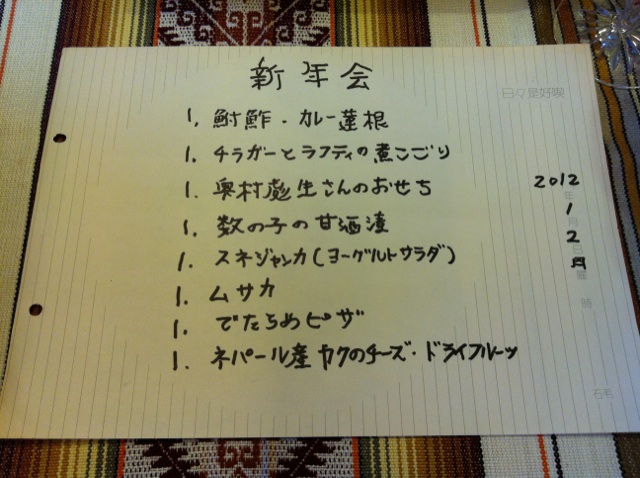 新年会
日々是好喫
1, 鮒鮓・カレー蓮根
1. チラガーとラフティの煮こごり
1. 奥村彪生さんのおせち
1, 数の子の甘酒漬
1. スネジャンカ(ヨーグルトサラダ)
1. ムサカ
1. でたらめピザ
1. ネパール産ヤクのチーズ・ドライフルーツ
2012
年
1
月
2
日
月
曜
時
石毛